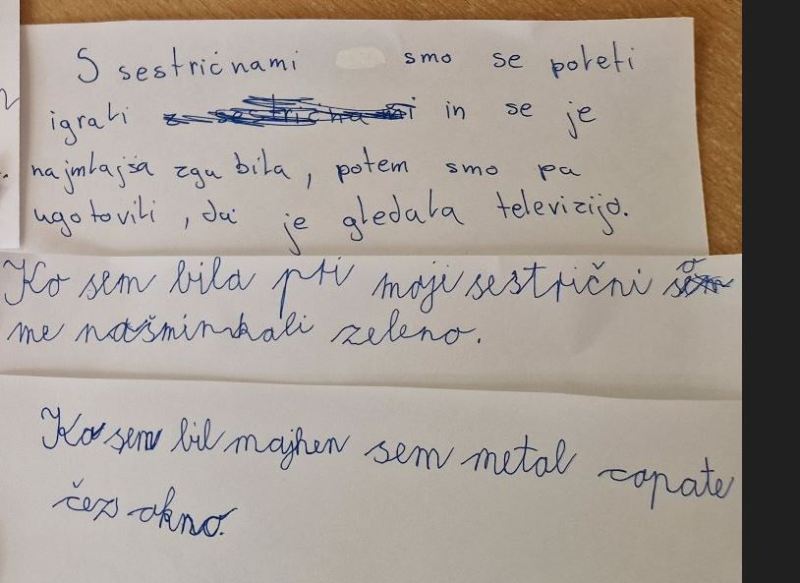 S sestričnami smo se poleti
igrali in se je
najmlajša zgubila, potem smo pa
ugotovili, da je gledala televizijo.
Ko sem bila pri moji sestrični so
me našminkali zeleno.
Ko sem bil majhen sem metal copate
čez okno.